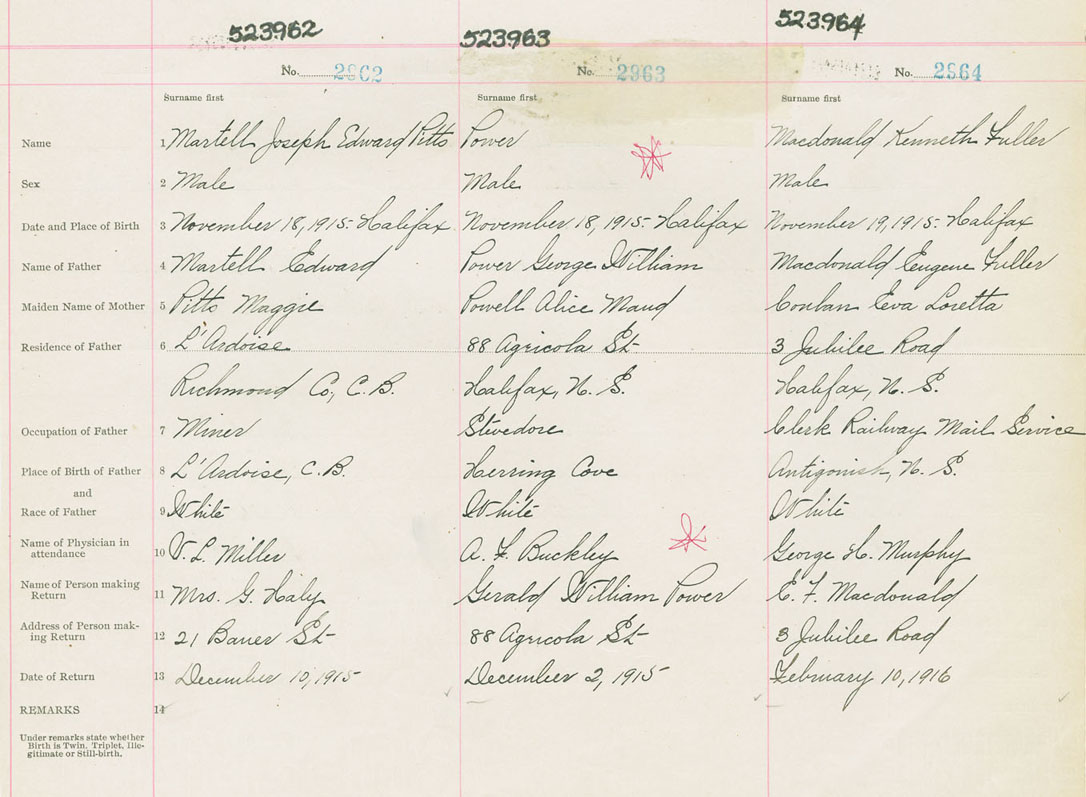 523962 523963 523964
No. 2962 No. 2963 No. 2964
Surname first Surname first Surname first
Name 1 Martell Joseph Edward Pitts Power Macdonald Kenneth Fuller
Sex 2 Male Male Male
Date and Place of Birth 3 November 18, 1915 - Halifax November 18, 1915 - Halifax November 19, 1915 - Halifax
Name of Father 4 Martell Edward Power George William Macdonald Eugene Fuller
Maiden Name of Mother 5 Pitts Maggie Powell Alice Maud Conlan Eva Loretta
Residence of Father 6 L'Ardoise 88 Agricola St 3 Jubilee Road
Richmond Co., C.B. Halifax, N. S. Halifax, N. S.
Occupation of Father 7 Miner Stevedore Clerk Railway Mail Service
Place of Birth of Father 8 L'Ardoise, C.B. Herring Cove Antigonish, N. S.
and
Race of Father 9 White White White
Name of Physician in
attendance 10 V. L. Miller A. F. Buckley George H. Murphy
Name of Person making
Return 11 Mrs. G. Haly Gerald William Power E. F. Macdonald
Address of Person mak-
ing Return 12 21 Bauer St 88 Agricola St 3 Jubilee Road
Date of Return 13 December 10, 1915 December 2, 1915 February 10, 1916
REMARKS 14
Under remarks state whether
Birth is Twin, Triplet, Ille-
gitimate or Still-birth.